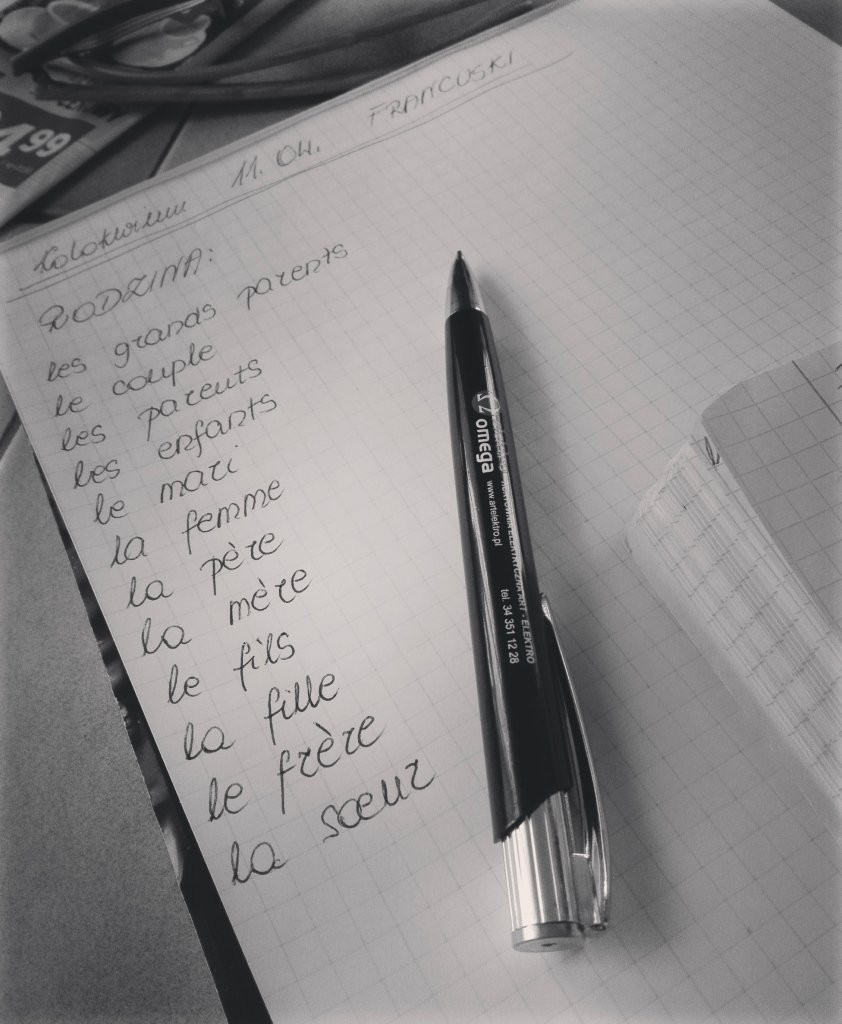 Kolokwium 11.04. FRANCUSKI
RODZINA:
les grands parents
le couple
les parents
les enfants
le mari
la femme
la père
la mère
le fils
la fille
le frère
la sœur
omega
www.artelektro.pl
HURTOWNIA ELEKTRYCZNA ART - ELEKTRO
tel. 34 351 12 28
99